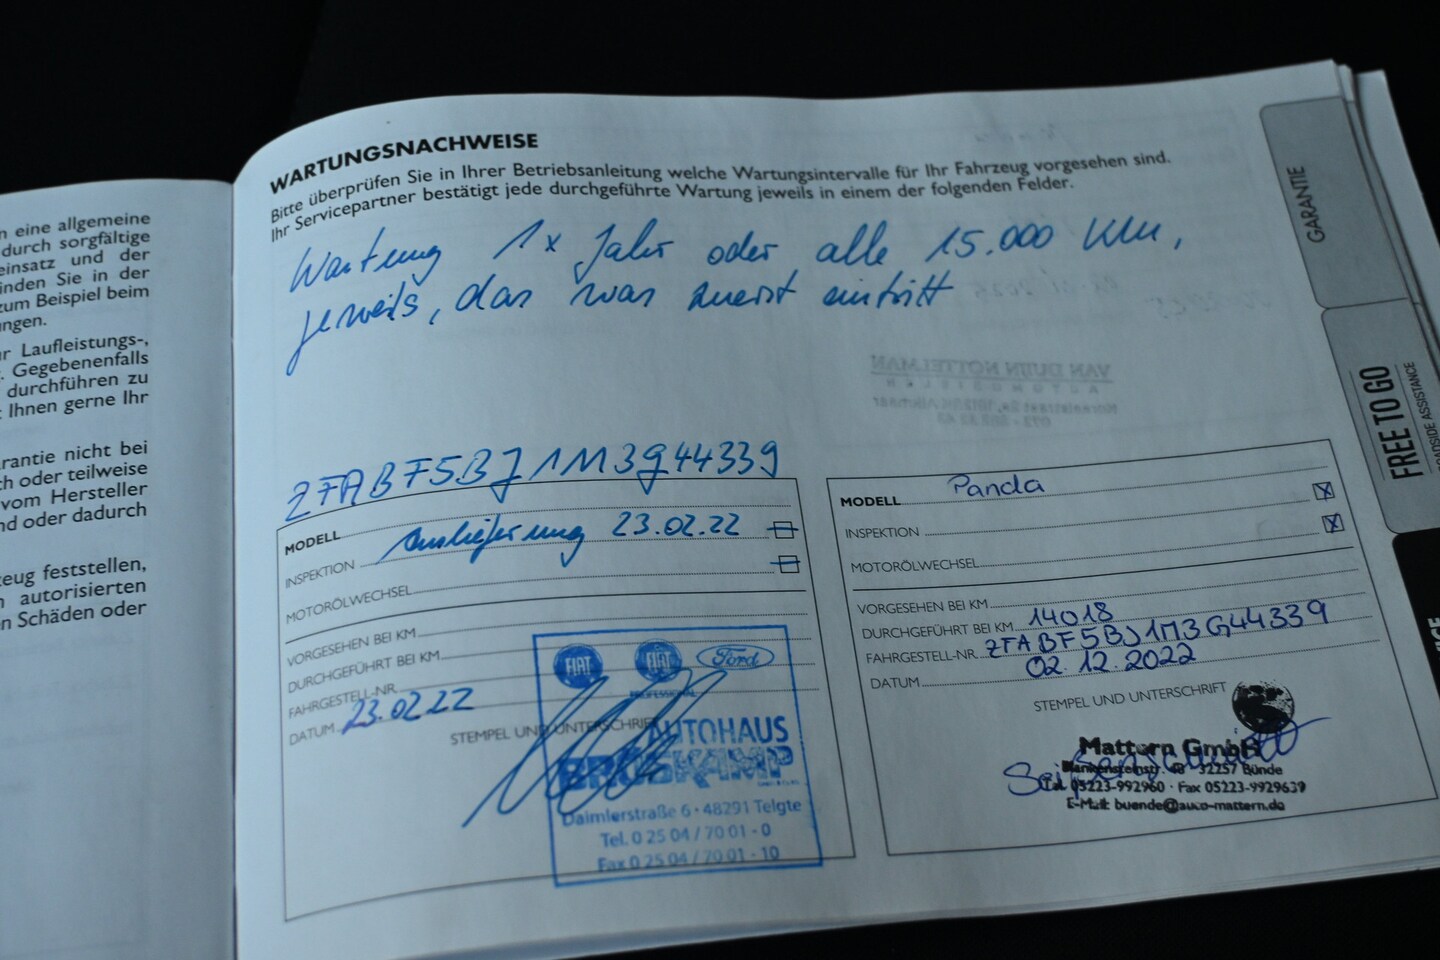 n eine allgemeine
durch sorgfältige
einsatz und der
inden Sie in der
zum Beispiel beim
ungen.
r Laufleistungs-,
. Gegebenenfalls
durchführen zu
t Ihnen gerne Ihr
rantie nicht bei
ch oder teilweise
vom Hersteller
nd oder dadurch
eug feststellen,
n autorisierten
n Schäden oder
WARTUNGSNACHWEISE
Bitte überprüfen Sie in Ihrer Betriebsanleitung welche Wartungsintervalle für Ihr Fahrzeug vorgesehen sind.
Ihr Servicepartner bestätigt jede durchgeführte Wartung jeweils in einem der folgenden Felder.
Wartung 1x Jahr oder alle 15.000 km,
jeweils, das was zuerst eintritt
ZFABF5BJ1M3G44339
MODELL
Auslieferung 23.02.22
INSPEKTION
MOTORÖLWECHSEL
VORGESEHEN BEI KM
DURCHGEFÜHRT BEI KM
FAHRGESTELL-NR.
DATUM 23.02.22
STEMPEL UND UNTERSCHRIFT
FIAT FIAT Ford
PROFESSIONAL
AUTOHAUS
BRÜSKAMP
Daimlerstraße 6 · 48291 Telgte
Tel. 0 25 04 / 70 01 - 0
Fax 0 25 04 / 70 01 - 10
MODELL Panda
INSPEKTION X
MOTORÖLWECHSEL X
VORGESEHEN BEI KM
DURCHGEFÜHRT BEI KM 14018
FAHRGESTELL-NR. ZFABF5BJ1M3G44339
DATUM 02.12.2022
STEMPEL UND UNTERSCHRIFT
Mattern GmbH
Blankensteinstr. 48 · 32257 Bünde
Tel. 05223-992960 · Fax 05223-9929639
E-Mail: buende@auto-mattern.de
GARANTIE
FREE TO GO
ROADSIDE ASSISTANCE
ICE